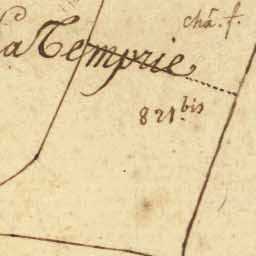 châ. f.
La Temprie
821 bis